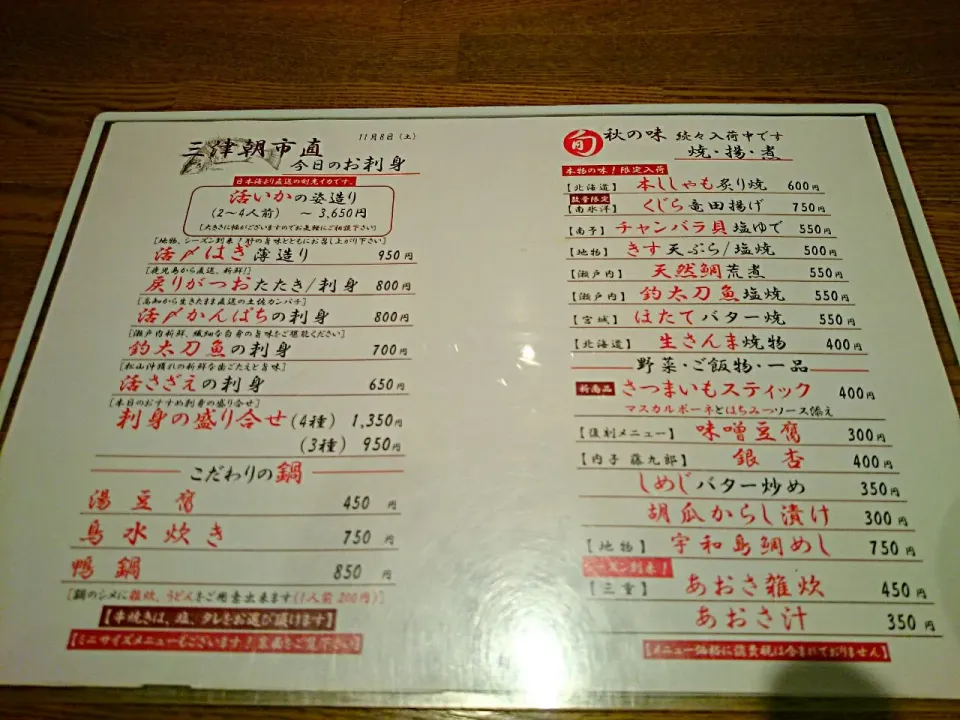 11月8日（土）
三津朝市直
今日のお刺身
日本海より直送の剣先イカです。
活いかの姿造り
（2〜4人前） 〜 3,650円
【大きさに幅がございますのでお気軽にご相談下さい】
【地物、シーズン到来！肝の旨味とともにお召し上がり下さい】
活〆はぎ薄造り 950円
【鹿児島から直送、新鮮！】
戻りがつおたたき/刺身 800円
【高知から生きたまま直送の土佐カンパチ】
活〆かんぱちの刺身 800円
【瀬戸内新鮮、繊細な白身の旨味をご堪能ください】
釣太刀魚の刺身 700円
【松山沖獲れの新鮮な歯ごたえと旨味】
活さざえの刺身 650円
【本日のおすすめ刺身の盛り合せ】
刺身の盛り合せ（4種） 1,350円
（3種） 950円
こだわりの鍋
湯豆腐 450円
鳥水炊き 750円
鴨鍋 850円
【鍋のシメに雑炊、うどんをご用意出来ます（1人前 200円）】
【串焼きは、塩、タレをお選び頂けます】
【ミニサイズメニューもございます！裏面をご覧下さい】
旬 秋の味 続々入荷中です
焼・揚・煮
本物の味！限定入荷
【北海道】 本ししゃも炙り焼 600円
数量限定
【南氷洋】 くじら竜田揚げ 750円
【南予】 チャンバラ貝塩ゆで 550円
【地物】 きす天ぷら/塩焼 500円
【瀬戸内】 天然鯛荒煮 550円
【瀬戸内】 釣太刀魚塩焼 550円
【宮城】 ほたてバター焼 550円
【北海道】 生さんま焼物 400円
野菜・ご飯物・一品
新商品 さつまいもスティック 400円
マスカルポーネとはちみつソース添え
【復刻メニュー】 味噌豆腐 300円
【内子 藤九郎】 銀杏 400円
しめじバター炒め 350円
胡瓜からし漬け 300円
【地物】 宇和島鯛めし 750円
シーズン到来！
【三重】 あおさ雑炊 450円
あおさ汁 350円
【メニュー価格に消費税は含まれておりません】